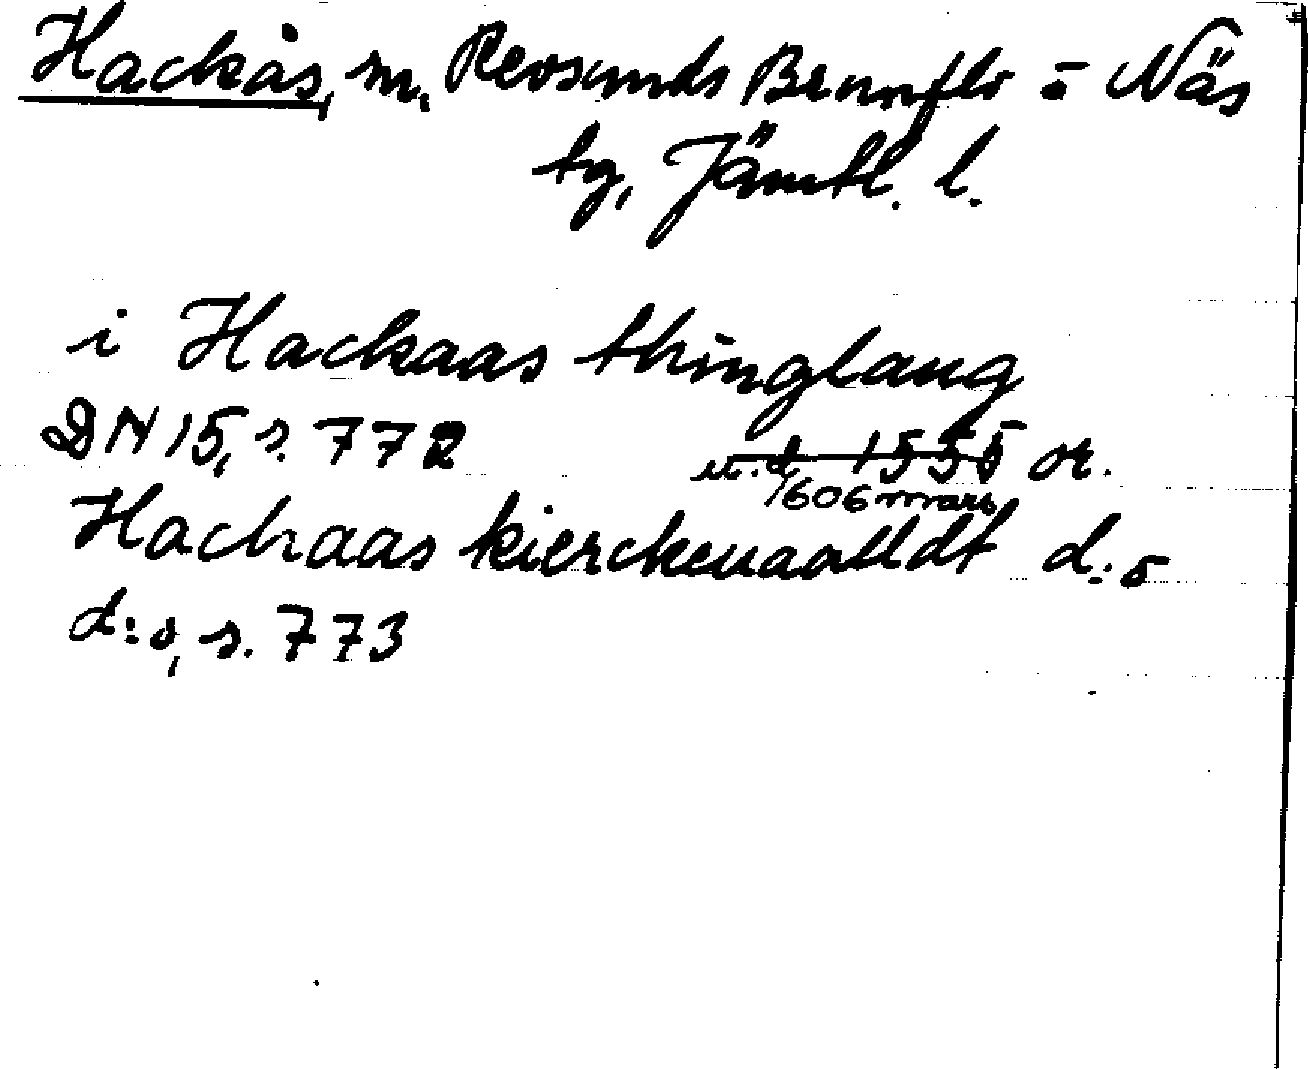 Hackås, sn, Revsunds Brunflo o Näs
tg, Jämtl. l.
i Hackaas thinglaug
DN 15, s. 772 u.d. 1555 or.
1606 mars
Hachaas kierckeuaalldt d:o
d:o, s. 773